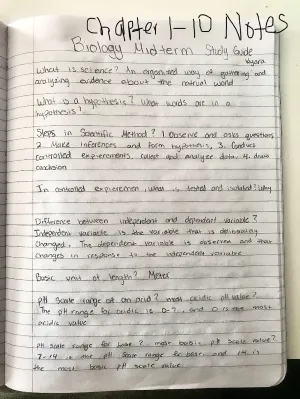 Chapter 1-10 Notes
Biology Midterm Study Guide
What is science? An organized way of gathering and
analyzing evidence about the natrual world
What is a hypothesis? What words are in a
hypothesis?
Steps in Scientific Method? 1. Observe and asks questions
2. Make inferences and form hypothesis, 3. Conduct
controlled expierements, collect and analyze data, 4. draw
conclusion
In controlled experiemen, what is tested and isolated? Why
Difference between independent and dependent variable?
Independent variable is the variable that is deliberatley
changed. The dependent variable is observed and that
changes in response to the independent variable
Basic unit of length? Meter
pH scale range of an acid? most acidic pH value?
The pH range for acidic is 0-7, and 0 is the most
acidic value
pH scale range for base? most basic pH scale value?
7-14 is the pH scale range for base, and 14 is
the most basic pH scale value.